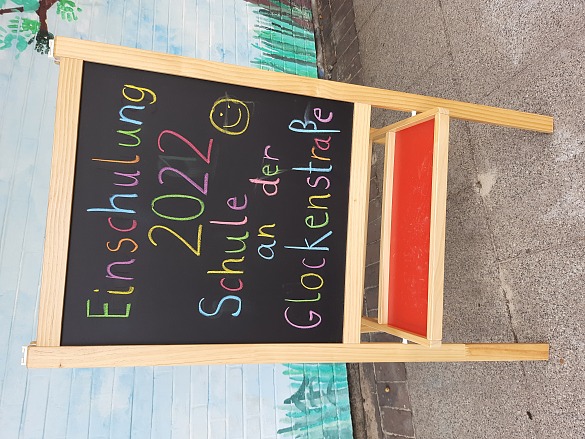 Einschulung
2022
Schule
an der
Glockenstraße